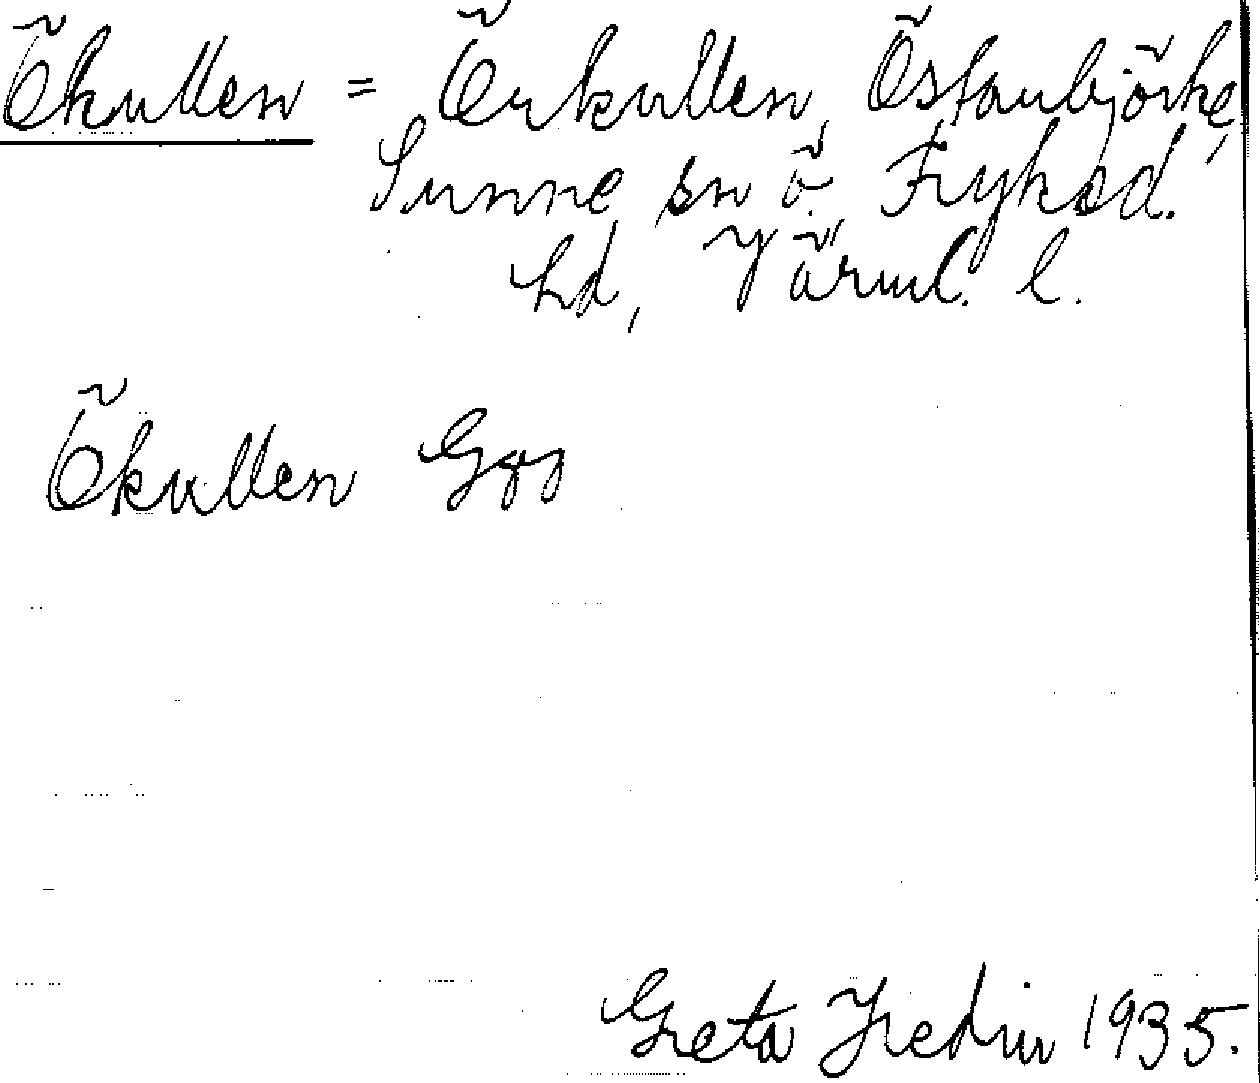 Ökullen = Örkullen, Östanbjörke,
Sunne sn Ö. Fryksd.
hd, Värml. l.
Ökullen Ggs
Greta Hedin 1935.